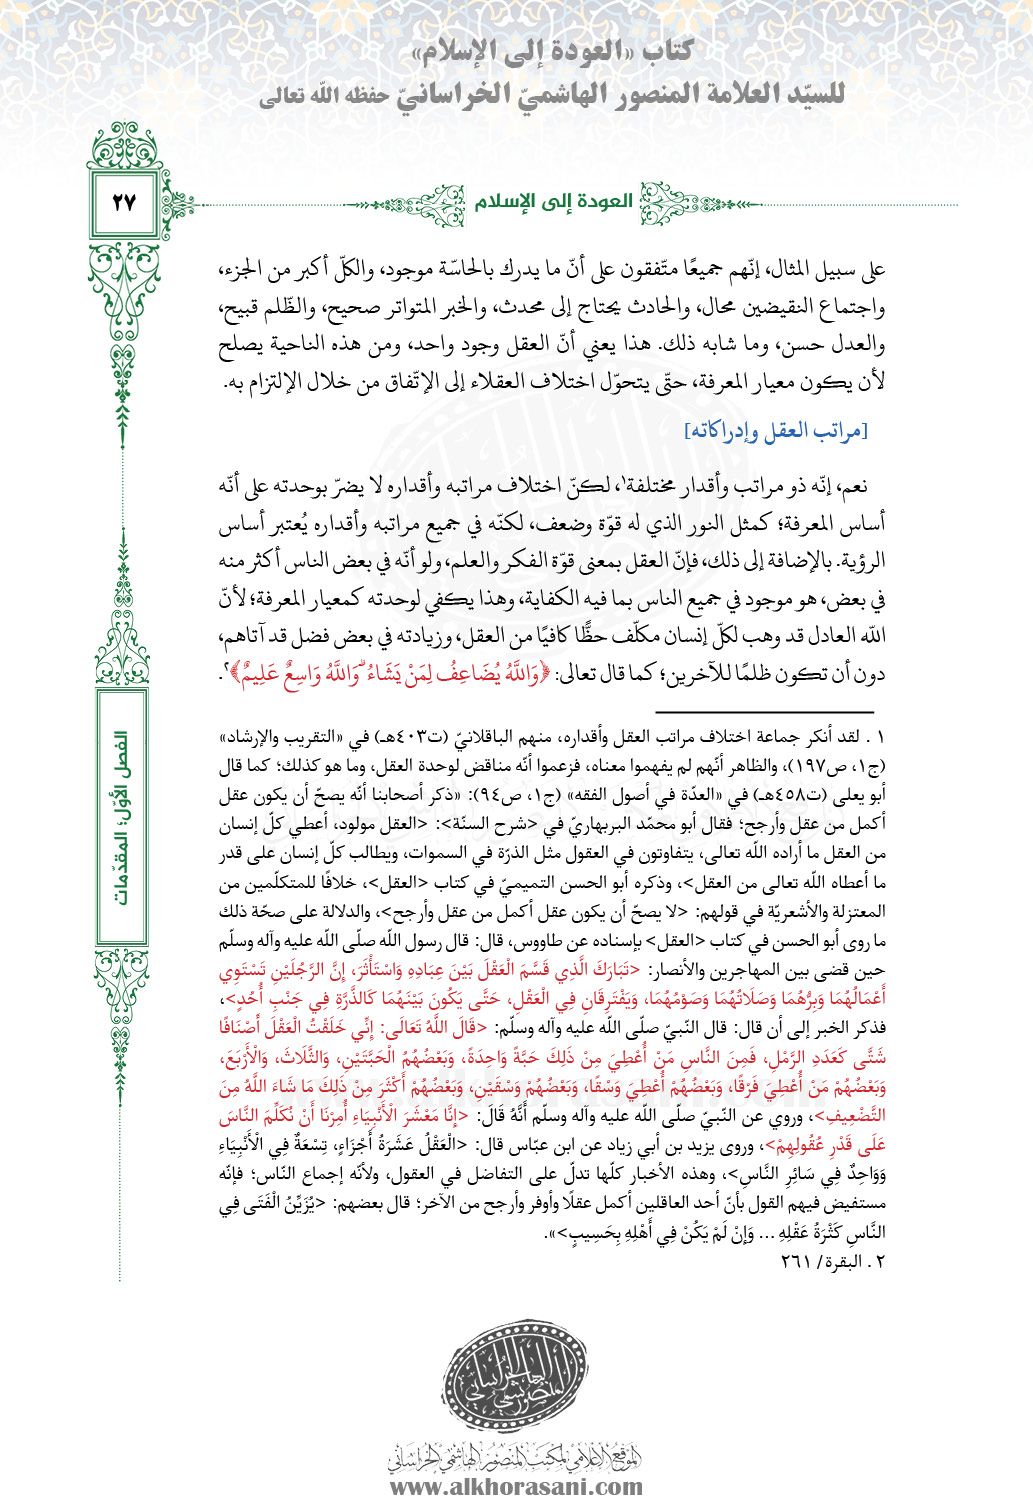 كتاب «العودة إلى الإسلام»
للسيّد العلامة المنصور الهاشميّ الخراسانيّ حفظه الله تعالى
٢٧
العودة إلى الإسلام
على سبيل المثال، إنّهم جميعًا متّفقون على أنّ ما يدرك بالحاسّة موجود، والكلّ أكبر من الجزء،
واجتماع النقيضين محال، والحادث يحتاج إلى محدث، والخبر المتواتر صحيح، والظّلم قبيح،
والعدل حسن، وما شابه ذلك. هذا يعني أنّ العقل وجود واحد، ومن هذه الناحية يصلح
لأن يكون معيار المعرفة، حتّى يتحوّل اختلاف العقلاء إلى الإتّفاق من خلال الإلتزام به.
[مراتب العقل وإدراكاته]
نعم، إنّه ذو مراتب وأقدار مختلفة١، لكنّ اختلاف مراتبه وأقداره لا يضرّ بوحدته على أنّه
أساس المعرفة؛ كمثل النور الذي له قوّة وضعف، لكنّه في جميع مراتبه وأقداره يُعتبر أساس
الرؤية. بالإضافة إلى ذلك، فإنّ العقل بمعنى قوّة الفكر والعلم، ولو أنّه في بعض الناس أكثر منه
في بعض، هو موجود في جميع الناس بما فيه الكفاية، وهذا يكفي لوحدته كمعيار المعرفة؛ لأنّ
اللّه العادل قد وهب لكلّ إنسان مكلّف حظًّا كافيًا من العقل، وزيادته في بعض فضل قد آتاهم،
دون أن تكون ظلمًا للآخرين؛ كما قال تعالى: ﴿وَاللَّهُ يُضَاعِفُ لِمَنْ يَشَاءُ ۗ وَاللَّهُ وَاسِعٌ عَلِيمٌ﴾٢.
١ . لقد أنكر جماعة اختلاف مراتب العقل وأقداره، منهم الباقلانيّ (ت٤٠٣هـ) في «التقريب والإرشاد»
(ج١، ص١٩٧)، والظاهر أنّهم لم يفهموا معناه، فزعموا أنّه مناقض لوحدة العقل، وما هو كذلك؛ كما قال
أبو يعلى (ت٤٥٨هـ) في «العدّة في أصول الفقه» (ج١، ص٩٤): «ذكر أصحابنا أنّه يصحّ أن يكون عقل
أكمل من عقل وأرجح؛ فقال أبو محمّد البربهاريّ في <شرح السنّة>: <العقل مولود، أعطي كلّ إنسان
من العقل ما أراده اللّه تعالى، يتفاوتون في العقول مثل الذرّة في السموات، ويطالب كلّ إنسان على قدر
ما أعطاه اللّه تعالى من العقل>، وذكره أبو الحسن التميميّ في كتاب <العقل>، خلافًا للمتكلّمين من
المعتزلة والأشعريّة في قولهم: <لا يصحّ أن يكون عقل أكمل من عقل وأرجح>، والدلالة على صحّة ذلك
ما روى أبو الحسن في كتاب <العقل> بإسناده عن طاووس، قال: قال رسول اللّه صلّى اللّه عليه وآله وسلّم
حين قضى بين المهاجرين والأنصار: <تَبَارَكَ الَّذِي قَسَّمَ الْعَقْلَ بَيْنَ عِبَادِهِ وَاسْتَأْثَرَ، إِنَّ الرَّجُلَيْنِ تَسْتَوِي
أَعْمَالُهُمَا وَبِرُّهُمَا وَصَلَاتُهُمَا وَصَوْمُهُمَا، وَيَفْتَرِقَانِ فِي الْعَقْلِ، حَتَّى يَكُونَ بَيْنَهُمَا كَالذَّرَّةِ فِي جَنْبِ أُحُدٍ>،
فذكر الخبر إلى أن قال: قال النبيّ صلّى اللّه عليه وآله وسلّم: <قَالَ اللَّهُ تَعَالَى: إِنِّي خَلَقْتُ الْعَقْلَ أَصْنَافًا
شَتَّى كَعَدَدِ الرَّمْلِ، فَمِنَ النَّاسِ مَنْ أُعْطِيَ مِنْ ذَلِكَ حَبَّةً وَاحِدَةً، وَبَعْضُهُمُ الْحَبَّتَيْنِ، وَالثَّلَاثَ، وَالْأَرْبَعَ،
وَبَعْضُهُمْ مَنْ أُعْطِيَ فَرْقًا، وَبَعْضُهُمْ أُعْطِيَ وَسْقًا، وَبَعْضُهُمْ وَسْقَيْنِ، وَبَعْضُهُمْ أَكْثَرَ مِنْ ذَلِكَ مَا شَاءَ اللَّهُ مِنَ
التَّضْعِيفِ>، وروي عن النّبيّ صلّى اللّه عليه وآله وسلّم أَنَّهُ قَالَ: <إِنَّا مَعْشَرَ الْأَنْبِيَاءِ أُمِرْنَا أَنْ نُكَلِّمَ النَّاسَ
عَلَى قَدْرِ عُقُولِهِمْ>، وروى يزيد بن أبي زياد عن ابن عبّاس قال: <الْعَقْلُ عَشَرَةُ أَجْزَاءٍ، تِسْعَةٌ فِي الْأَنْبِيَاءِ
وَوَاحِدٌ فِي سَائِرِ النَّاسِ>، وهذه الأخبار كلّها تدلّ على التفاضل في العقول، ولأنّه إجماع النّاس؛ فإنّه
مستفيض فيهم القول بأنّ أحد العاقلين أكمل عقلًا وأوفر وأرجح من الآخر؛ قال بعضهم: <يُزَيِّنُ الْفَتَى فِي
النَّاسِ كَثْرَةُ عَقْلِهِ ... وَإِنْ لَمْ يَكُنْ فِي أَهْلِهِ بِحَسِيبٍ>».
٢ . البقرة/ ٢٦١
الفصل الأوّل؛ المقدّمات
المنصور الهاشمي الخراساني
الموقع الإعلامي لمكتب المنصور الهاشمي الخراساني
www.alkhorasani.com